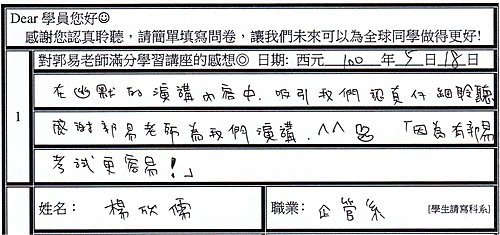 Dear 學員您好☺
感謝您認真聆聽，請簡單填寫問卷，讓我們未來可以為全球同學做得更好!
對郭易老師滿分學習講座的感想◎ 日期: 西元 100 年 5 日 18 日
1
在幽默的演講內容中，吸引我們認真仔細聆聽
感謝郭易老師為我們演講．^^ 「因為有郭易
考試更容易！」
姓名： 楊欣儒 職業： 企管系 [學生請寫科系]